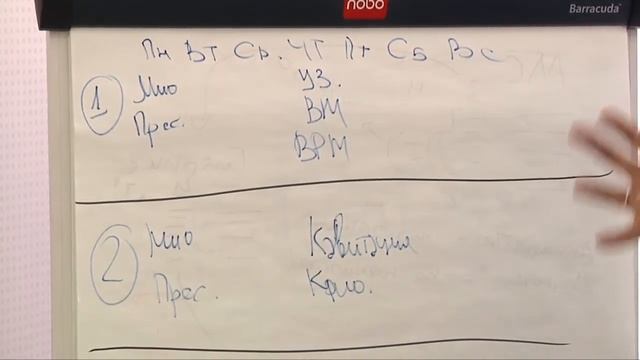 nobo
Barracuda
Пн Вт Ср. Чт Пт Сб Вс
1 Мио УЗ.
Прес. ВМ
ВРМ
2 Мио Кавитация
Прес. Крио.